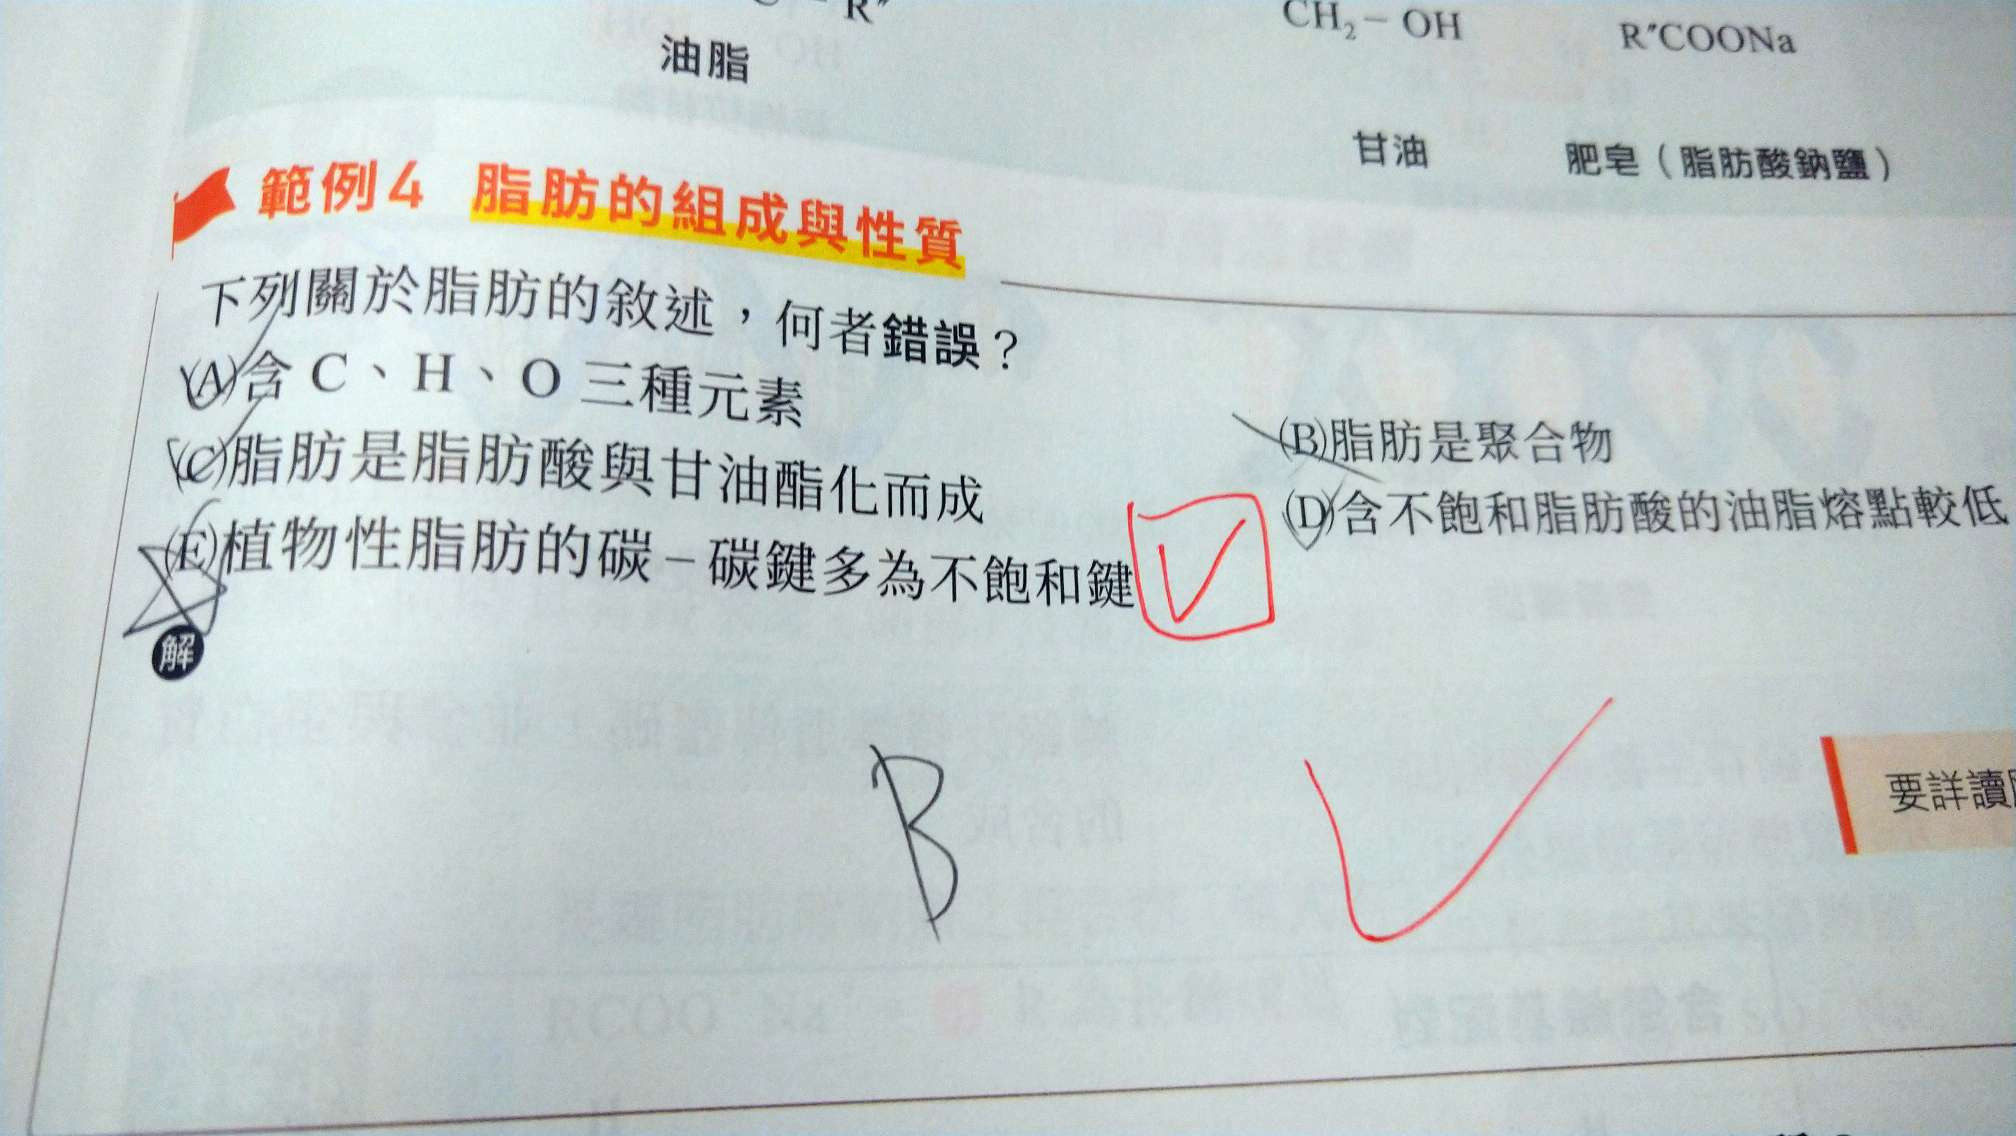 R″
CH₂－OH
R″COONa
油脂
甘油
肥皂（脂肪酸鈉鹽）
範例4 脂肪的組成與性質
下列關於脂肪的敘述，何者錯誤？
(A)含 C、H、O 三種元素
(B)脂肪是聚合物
(C)脂肪是脂肪酸與甘油酯化而成
(D)含不飽和脂肪酸的油脂熔點較低
(E)植物性脂肪的碳－碳鍵多為不飽和鍵
解
B
要詳讀